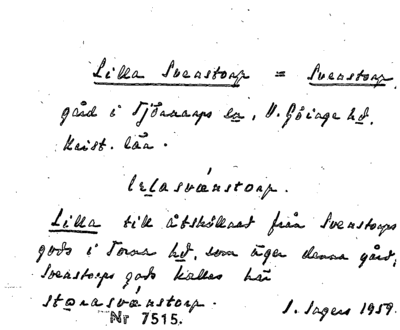 Lilla Svenstorp = Svenstorp,
gård i Tjörnarps sn, V. Göinge hd.
Krist. län.
lelasvænstorp.
Lilla till åtskillnad från Svenstorps
gods i Torna hd. som äger denna gård.
Svenstorps gods kallas här
storasvænstorp. I. Ingers 1959.
Nr 7515.